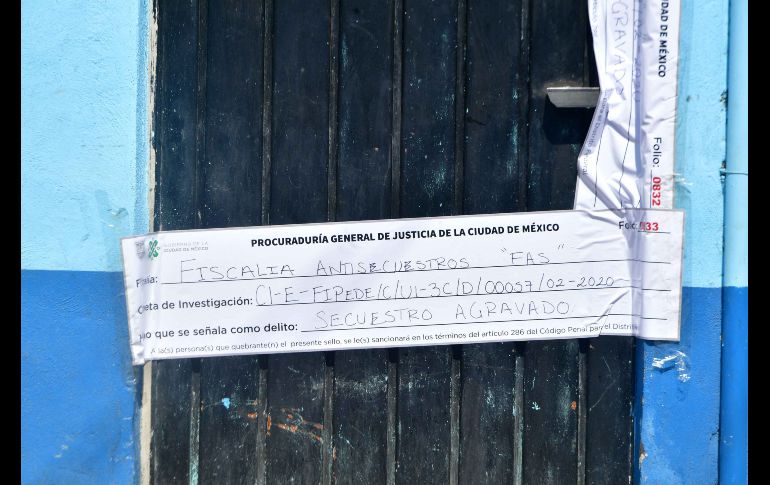 DE MÉXICO
CIUDAD DE MÉXICO
02 2020
AGRAVADO
Folio: 0832
GOBIERNO DE LA CIUDAD DE MÉXICO
PROCURADURÍA GENERAL DE JUSTICIA DE LA CIUDAD DE MÉXICO
Folio: 833
Fiscalía: FISCALIA ANTISECUESTROS "FAS"
eta de Investigación: CI-E-FIPEDE/C/UI-3C/D/00057/02-2020
ho que se señala como delito: SECUESTRO AGRAVADO
A la(s) persona(s) que quebrante(n) el presente sello, se le(s) sancionará en los términos del artículo 286 del Código Penal para el Distri